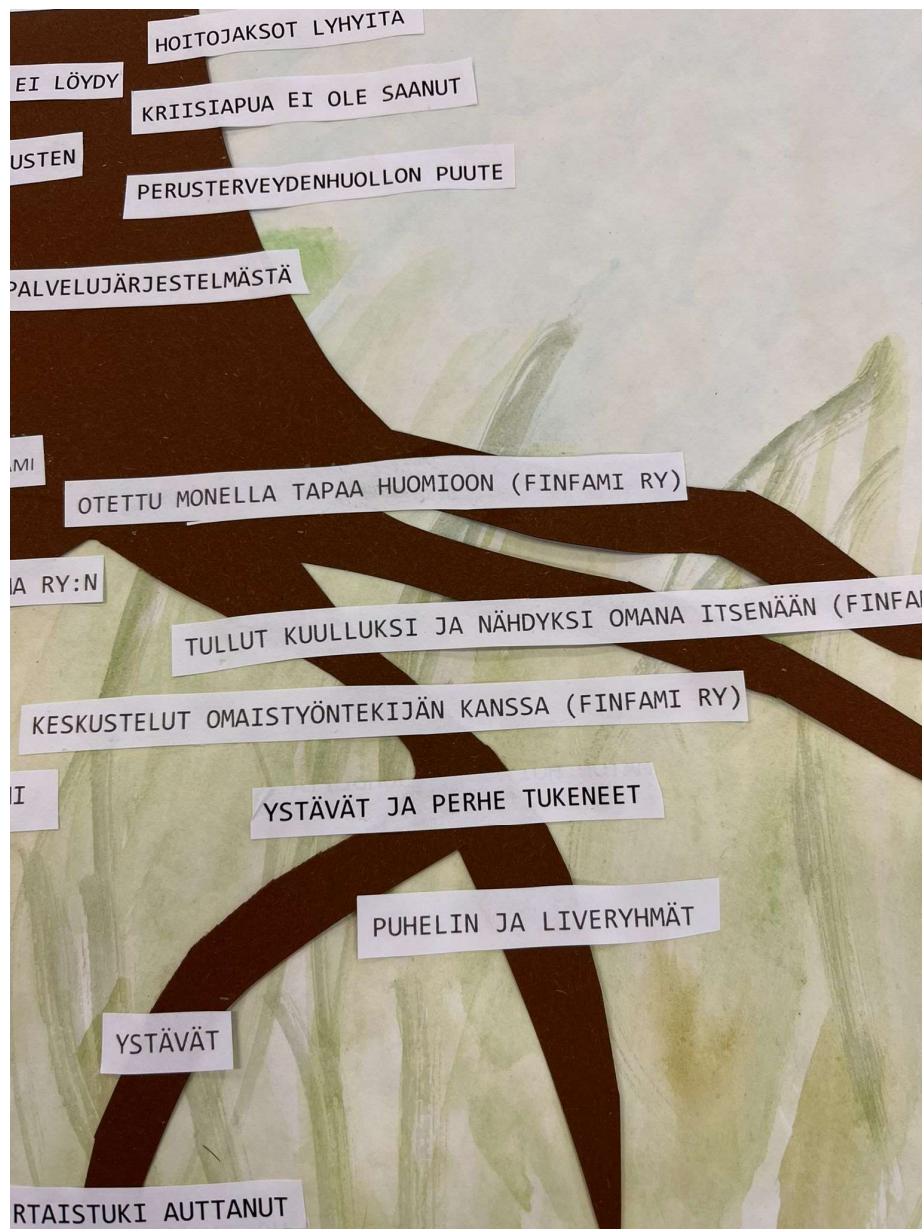 HOITOJAKSOT LYHYITÄ
EI LÖYDY
KRIISIAPUA EI OLE SAANUT
USTEN
PERUSTERVEYDENHUOLLON PUUTE
PALVELUJÄRJESTELMÄSTÄ
AMI
OTETTU MONELLA TAPAA HUOMIOON (FINFAMI RY)
A RY:N
TULLUT KUULLUKSI JA NÄHDYKSI OMANA ITSENÄÄN (FINFA
KESKUSTELUT OMAISTYÖNTEKIJÄN KANSSA (FINFAMI RY)
I
YSTÄVÄT JA PERHE TUKENEET
PUHELIN JA LIVERYHMÄT
YSTÄVÄT
RTAISTUKI AUTTANUT